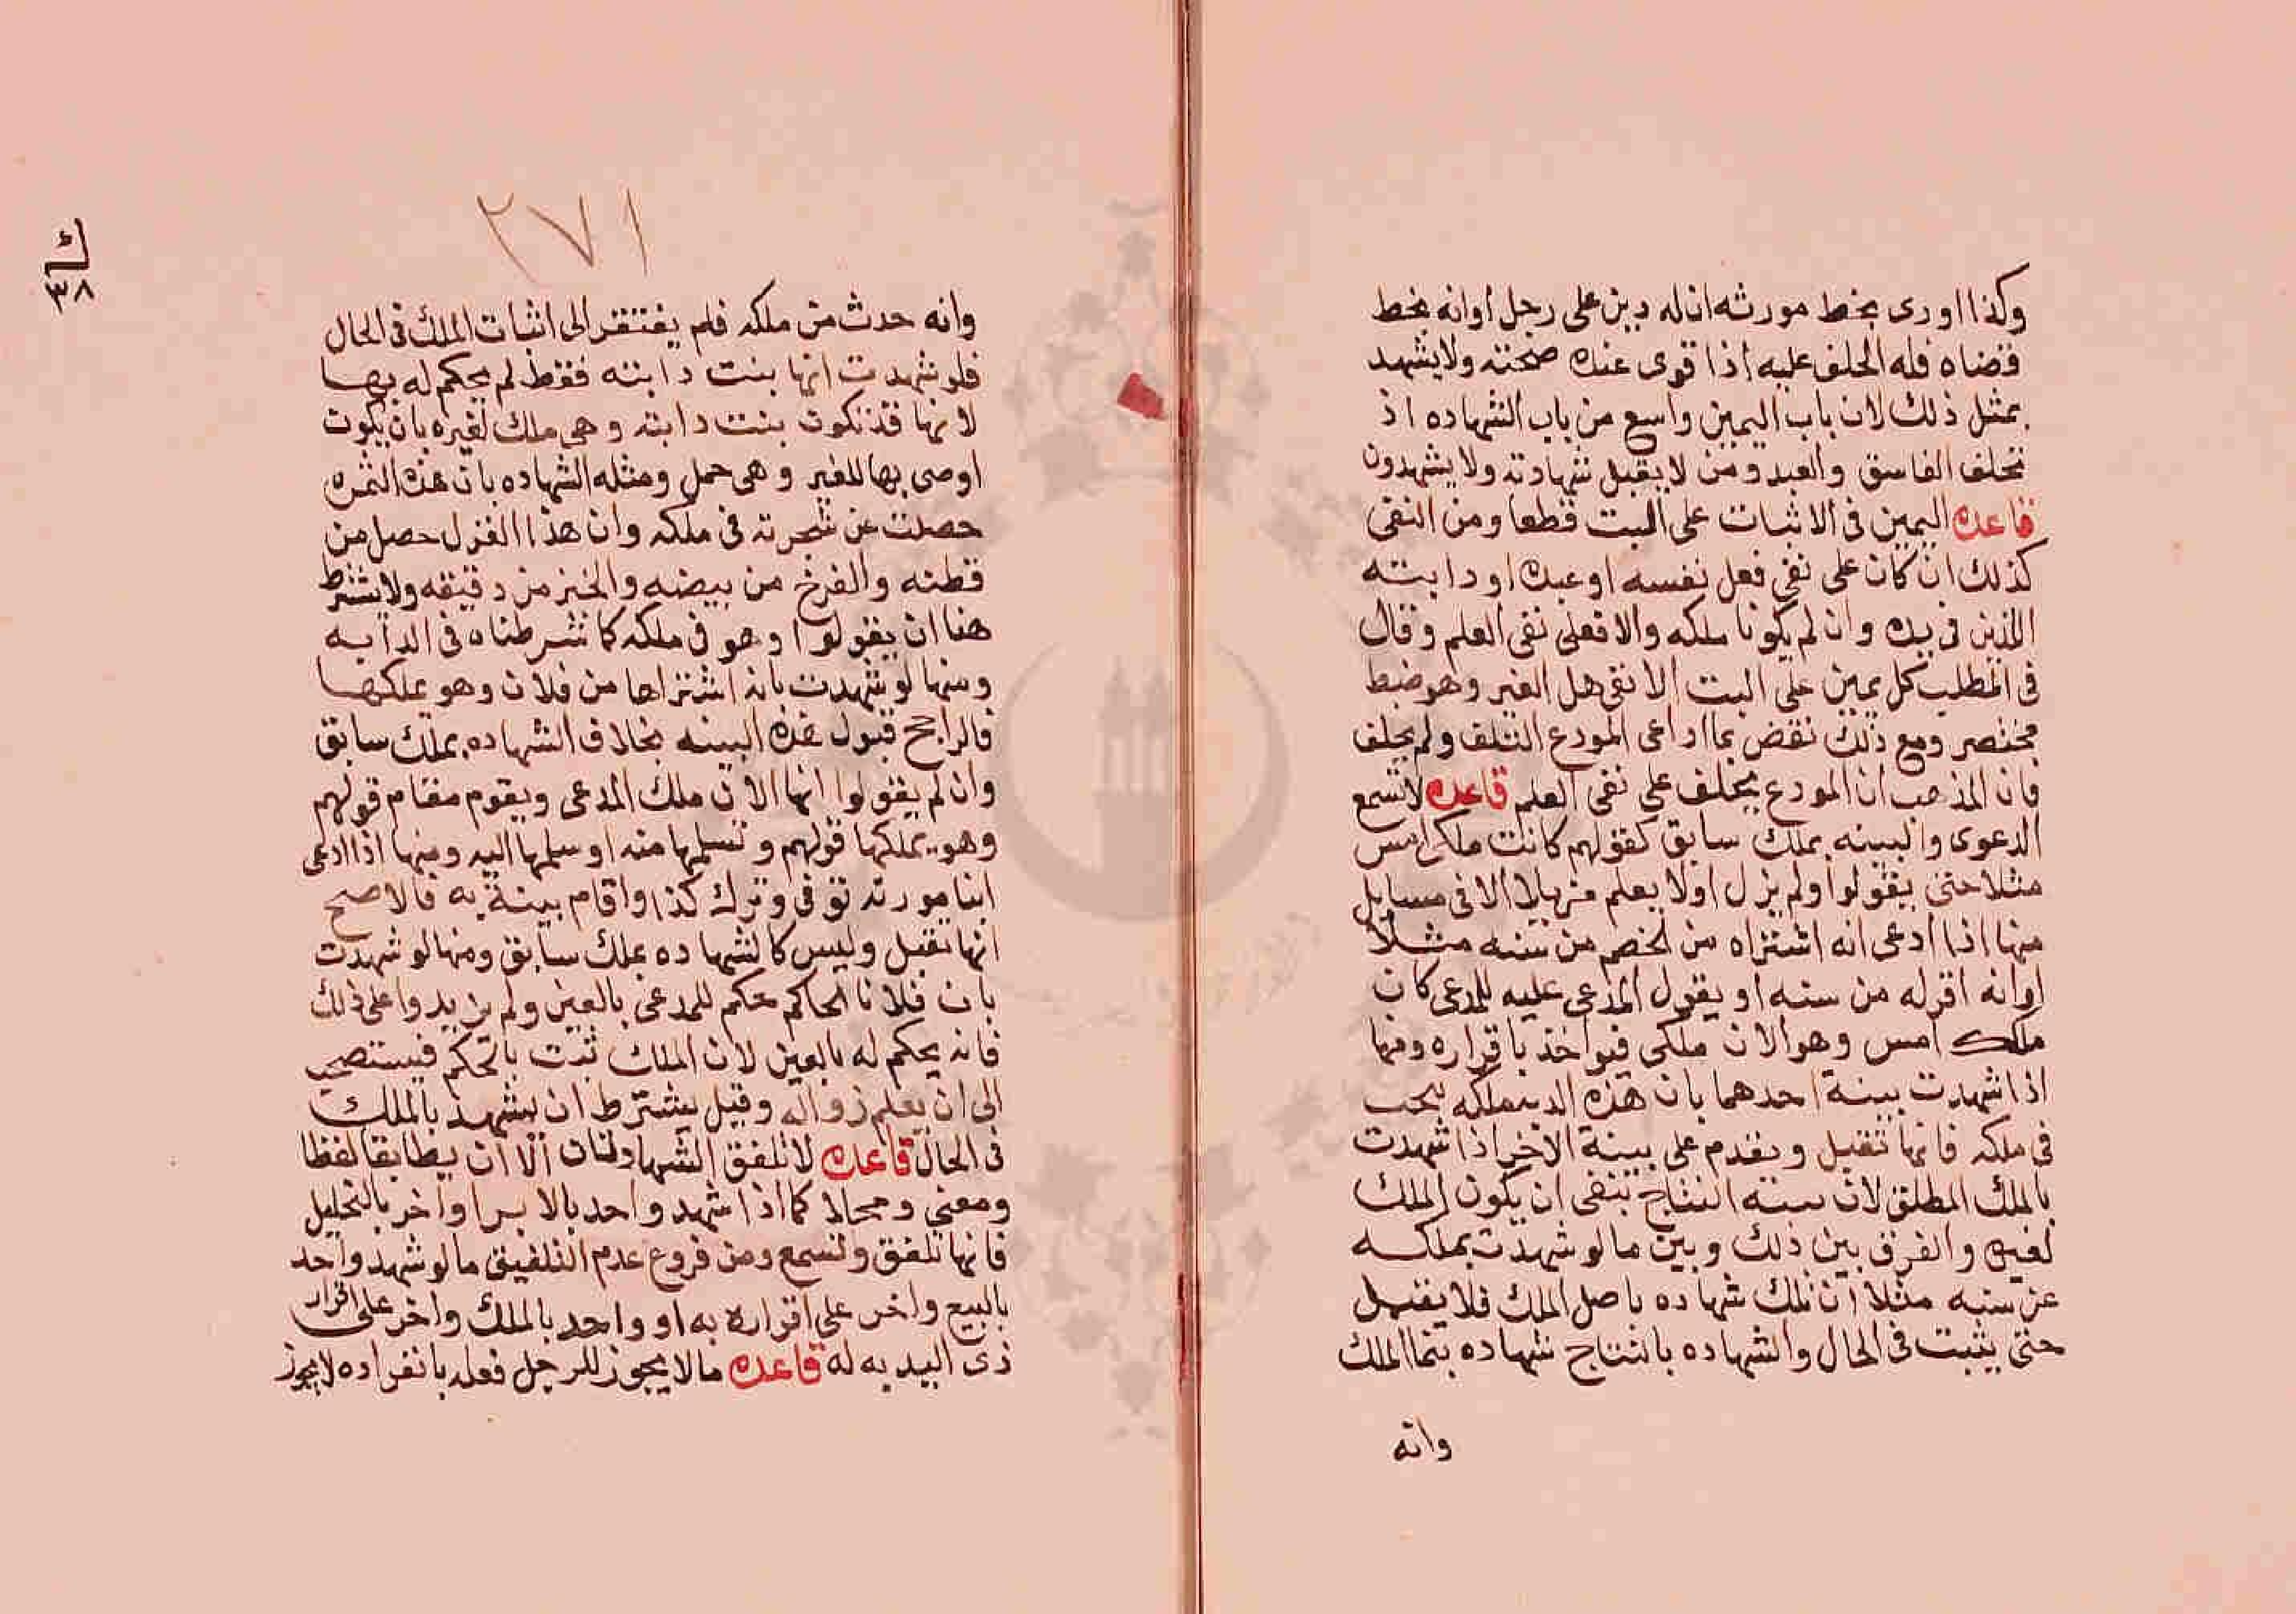 وكذا اورى بخط مورثه ان له دين على رجل اوانه بخط
قضاه فله الحلف عليه اذا قوى عنده صحته ولا يشهد
بمثل ذلك لان باب اليمين واسع من باب الشهاده اذ
يحلف الفاسق والعبد ومن لا يقبل شهادته ولا يشهدون
قاعده اليمين فى الاثبات على البت قطعا ومن النفى
كذلك ان كان على نفى فعل نفسه او عبده او دابته
اللذين فى يده وان لم يكونا ملكه والا فعلى نفى العلم وقال
فى المطلب كل يمين على البت الا نفى فعل الغير وهو ضبط
مختصر ومع ذلك نقض بما ادعى المودع التلف ولم يحلف
فان المذهب ان المودع يحلف على نفى العلم قاعده لا تسمع
الدعوى والبينه بملك سابق كقولهم كانت ملكه امس
مثلا حتى يقولوا ولم يزل اولا يعلم مزيلا الا فى مسايل
منها اذا ادعى انه اشتراه من الخصم من سنه مثلا
اوانه اقر له من سنه او يقول المدعى عليه للمدعى كان
ملكك امس وهو الان ملكى فيواخذ باقراره ومنها
اذا شهدت بينة احدهما بان هذه الدابه ملكه نتجت
فى ملكه فانها تقبل ويقدم على بينة الاخر اذا شهدت
بالملك المطلق لان بينه النتاج تنفى ان يكون الملك
لغيره والفرق بين ذلك وبين ما لو شهدت بملكه
من سنه مثلا ان تلك شهاده باصل الملك فلا يقبل
حتى يثبت فى الحال والشهاده بالنتاج شهاده بنما الملك
وانه
٢٧١
ك
٣٨
وانه حدث من ملكه فلم يفتقر الى اثبات الملك فى الحال
فلو شهدت انها بنت دابته فقط لم يحكم له بها
لانها قد تكون بنت دابته وهى ملك لغيره بان يكون
اوصى بها للغير وهى حمل ومثله الشهاده بان هذه الثمره
حصلت من شجرته فى ملكه وان هذا الغزل حصل من
قطنه والفرخ من بيضه والخبز من دقيقه ولا يشترط
هنا ان يقولوا وهو فى ملكه كما شرطناه فى الدابه
ومنها لو شهدت بانه اشتراها من فلان وهو يملكها
فالراجح قبول هذه البينه بخلاف الشهاده بملك سابق
وان لم يقولوا انها الان ملك المدعى ويقوم مقام قولهم
وهو يملكها قولهم وتسلمها منه او سلمها اليه ومنها اذا ادعى
ان مورثه توفى وترك كذا واقام بينة به فالاصح
انها تقبل وليس كالشهاده بملك سابق ومنها لو شهدت
بان فلانا الحاكم حكم للمدعى بالعين ولم يزيدوا على ذلك
فانه يحكم له بالعين لان الملك ثبت بالحكم فيستصحب
الى ان يعلم زواله وقيل يشترط ان يشهد بالملك
فى الحال قاعده لا تلفق الشهادتان الا ان يطابقا لفظا
ومعنى ومحلا كما اذا شهد واحد بالابرا واخر بالتحليل
فانها تلفق وتسمع ومن فروع عدم التلفيق ما لو شهد واحد
بالبيع واخر على اقراره به او واحد بالملك واخر على اقرار
ذى اليد به له قاعده ما لا يجوز للرجل فعله بانفراده لا يجوز